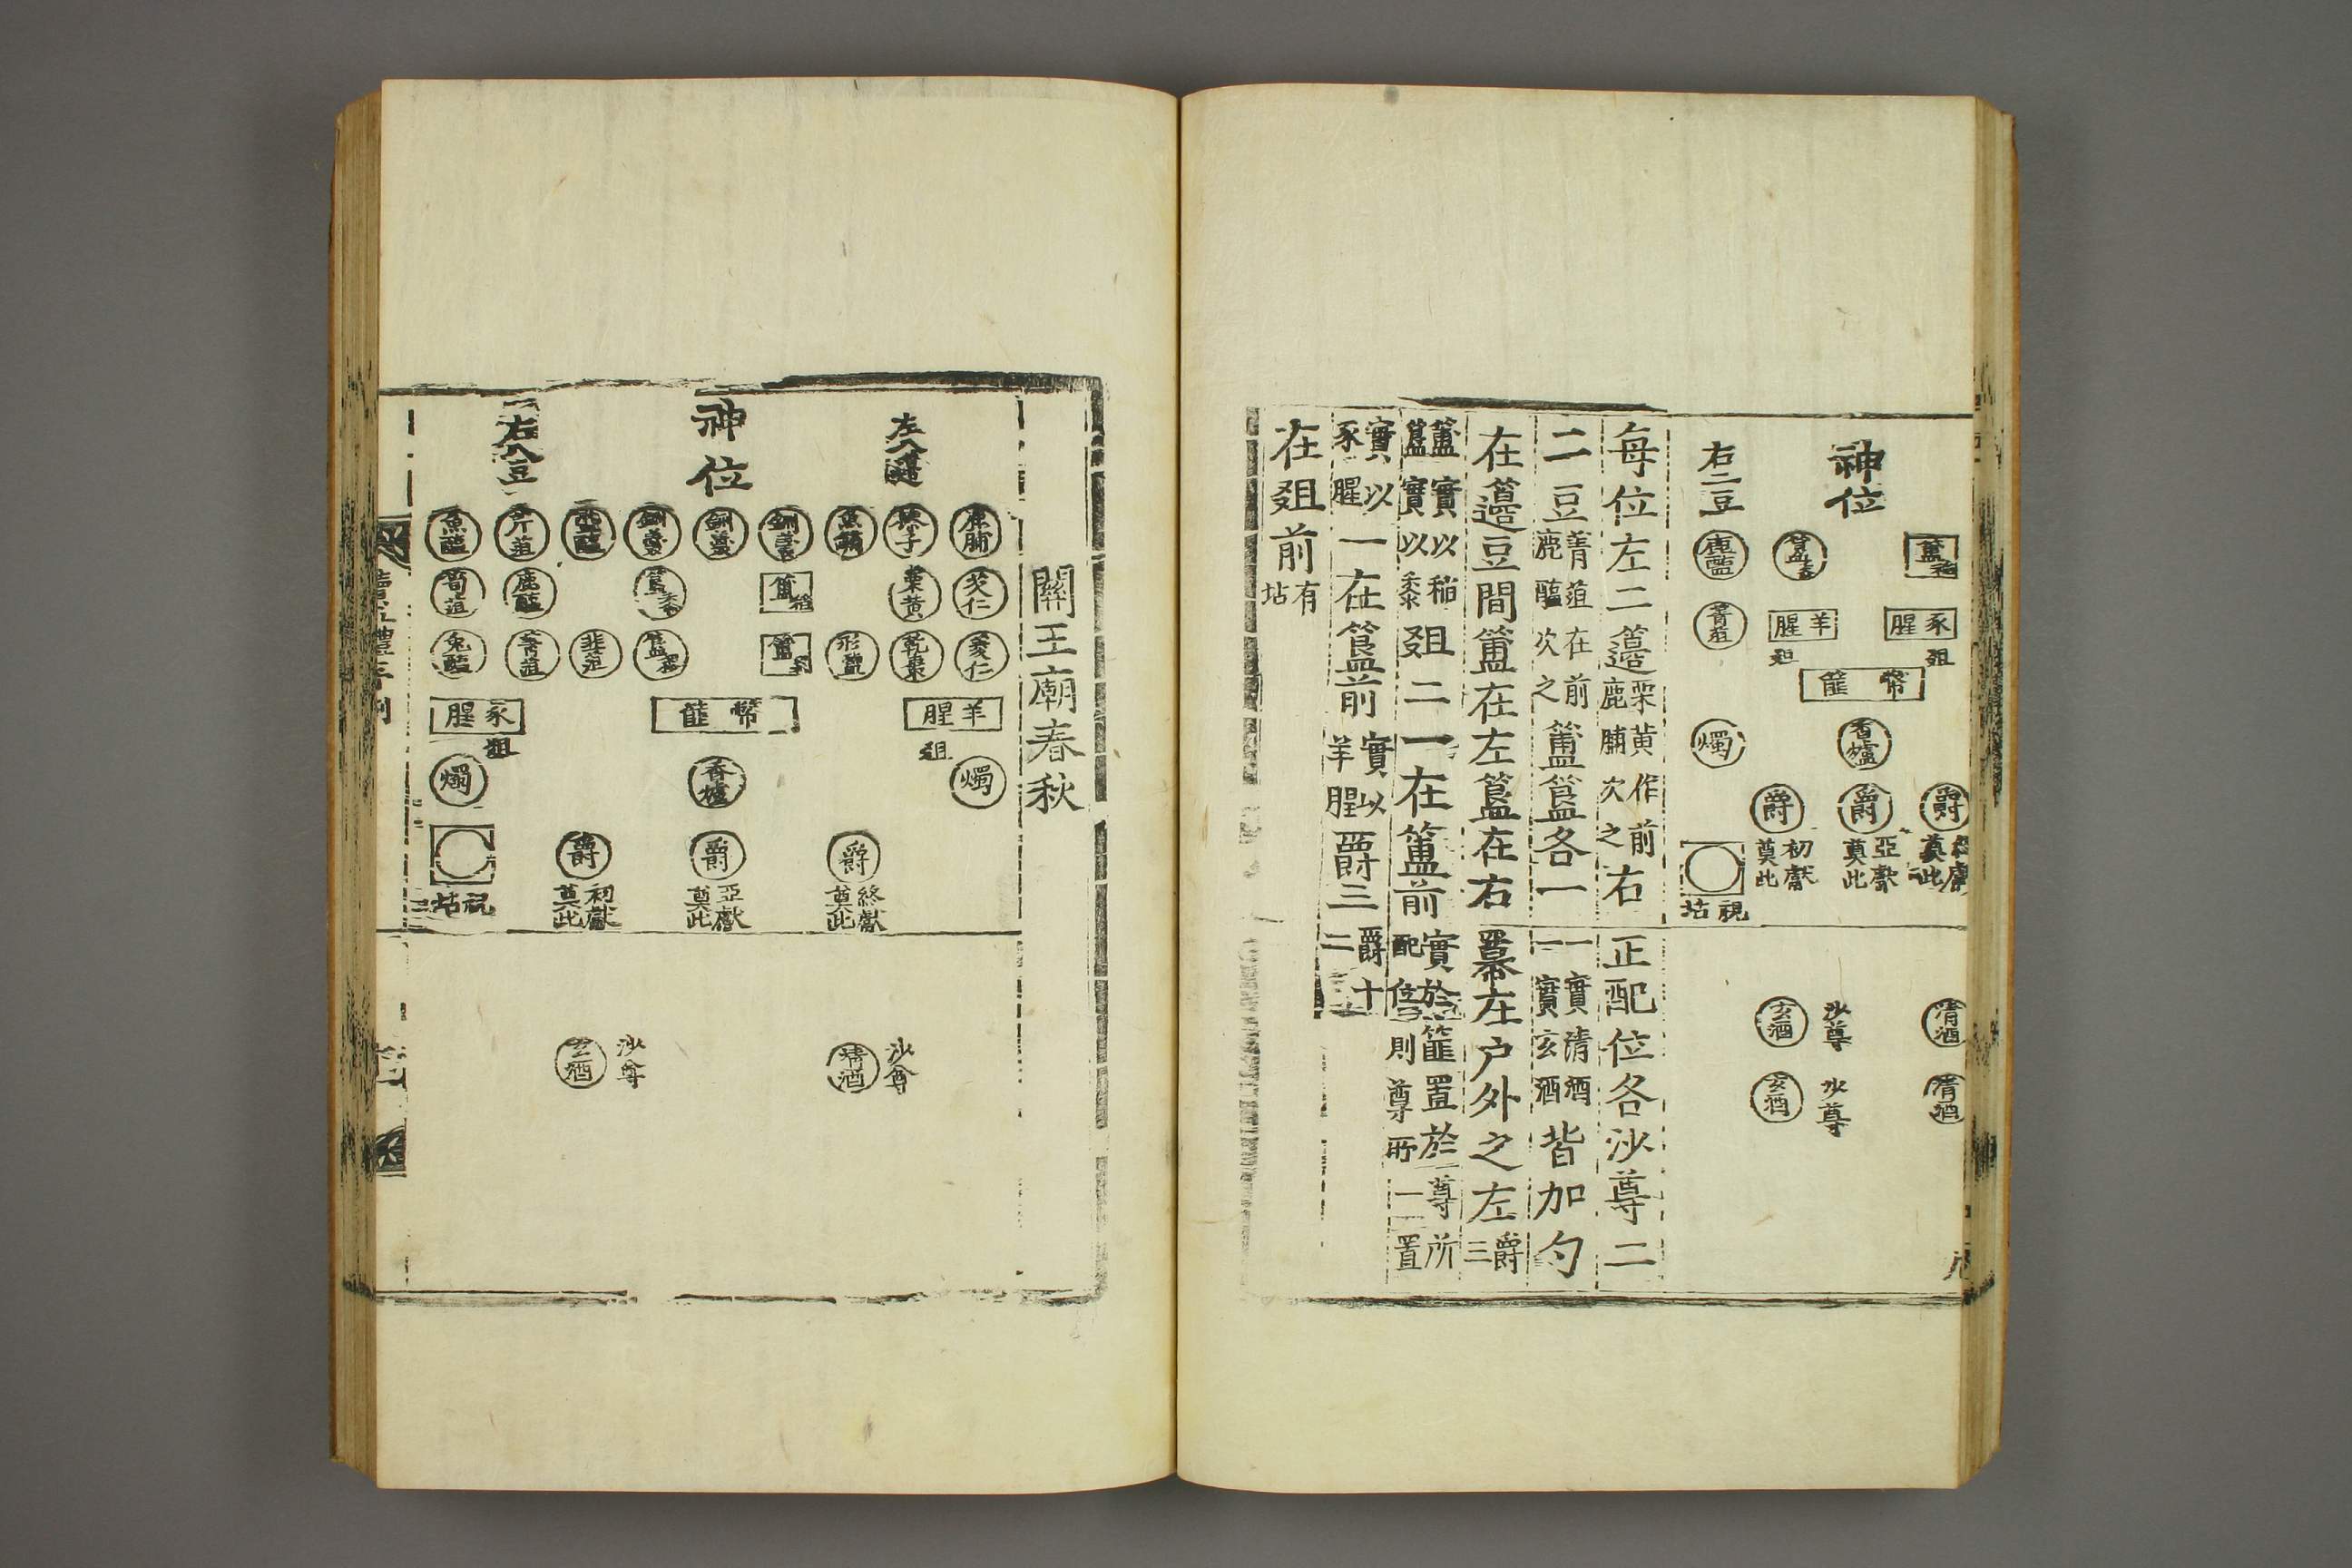 神位
右二豆
簠稻
簋黍
鹿醢
豕腥
俎
羊腥
俎
菁菹
幣篚
香爐
燭
爵
爵
爵
終獻奠此
亞獻奠此
初獻奠此
祝坫
清酒
沙尊
玄酒
清酒
沙尊
玄酒
每位左二籩栗黃作前鹿脯次之右
二豆菁菹在前鹿醢次之簠簋各一
在籩豆間簠在左簋在右
簠實以稻簋實以黍俎二一在簠前
實以豕腥一在簋前實以羊腥爵三
在俎前有坫
正配位各沙尊二
一實清酒一實玄酒皆加勺
冪在户外之左爵三
實於篚置於尊所配位則尊所一置
爵十二
關王廟春秋
左八籩
神位
右八豆
鹿脯
榛子
魚鱐
鉶羹
鉶羹
鉶羹
醓醢
芹菹
魚醢
芡仁
栗黃
簠稻
簋黍
鹿醢
筍菹
菱仁
乾棗
形鹽
簠粱
簋稷
韭菹
菁菹
兔醢
羊腥
俎
幣篚
豕腥
俎
燭
香爐
燭
爵
爵
爵
終獻奠此
亞獻奠此
初獻奠此
祝坫
沙尊
清酒
沙尊
玄酒